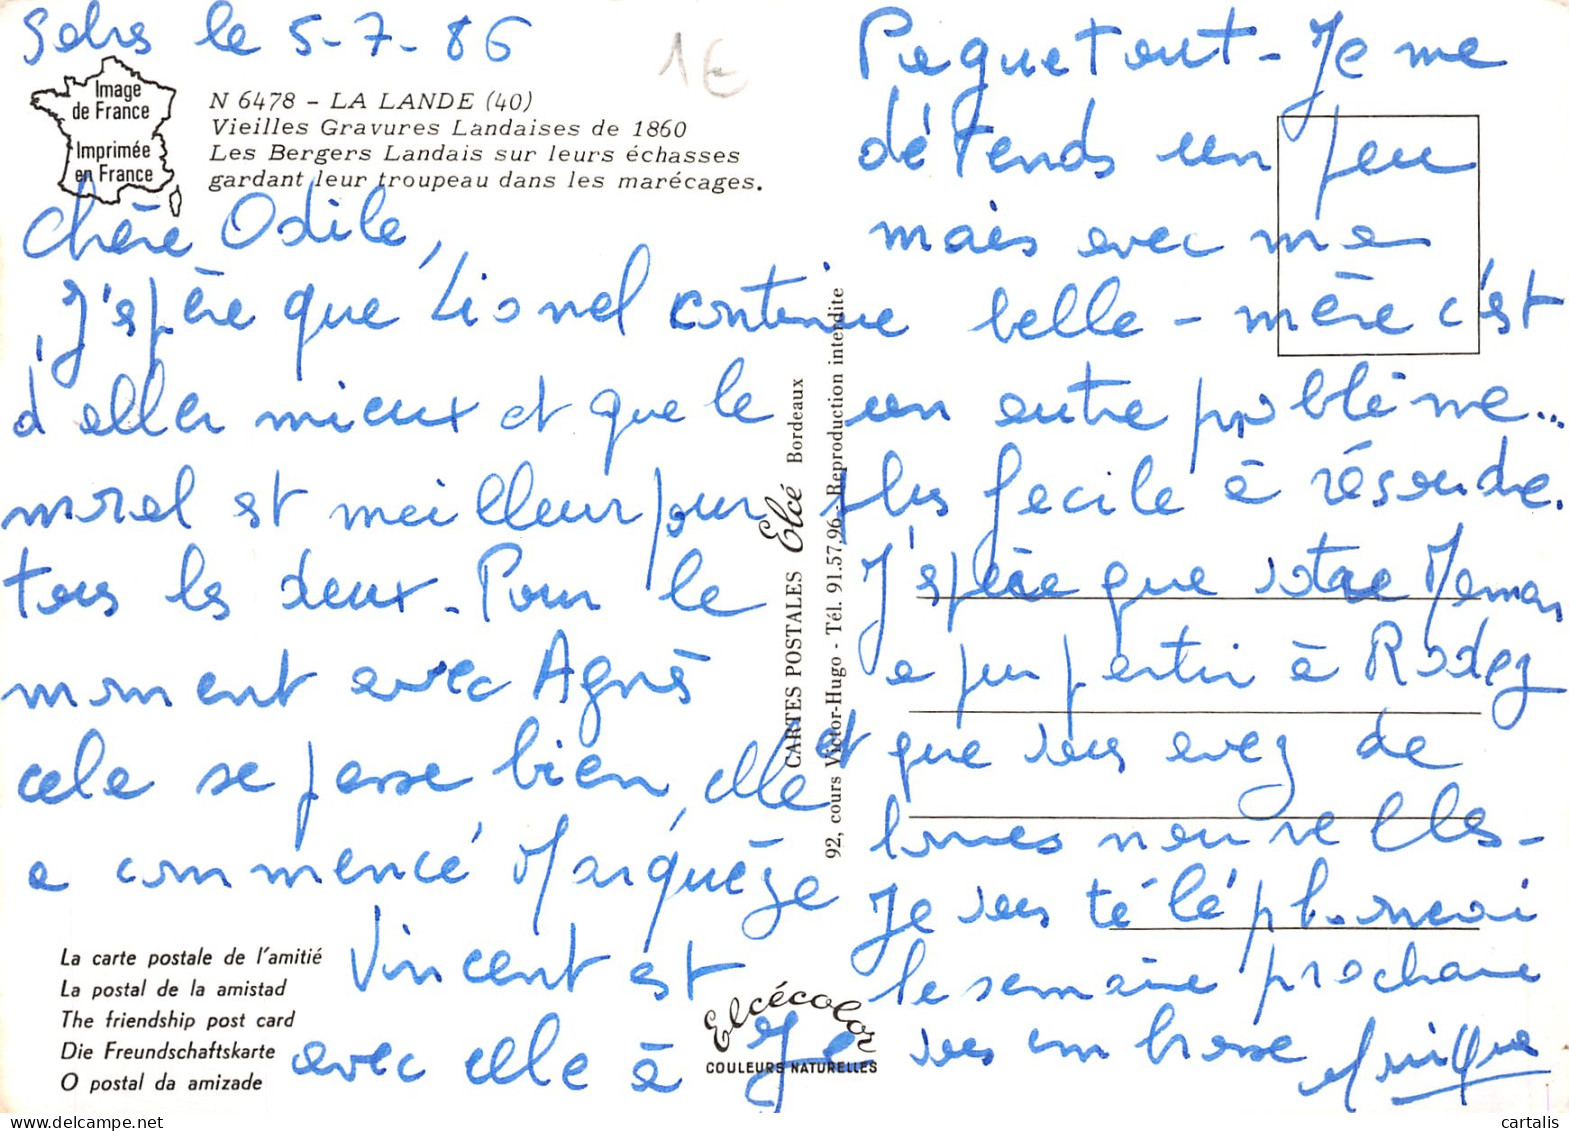 Sabres le 5-7-86
1€
Image
de France
Imprimée
en France
N 6478 - LA LANDE (40)
Vieilles Gravures Landaises de 1860
Les Bergers Landais sur leurs échasses
gardant leur troupeau dans les marécages.
Chère Odile,
J'espère que Lionel continue
d'aller mieux et que le
moral est meilleur pour
tous les deux - Pour le
moment avec Agnès
cela se passe bien, elle
a commencé Marquèze et
Vincent est
avec elle à
Piquetout - Je me
détends un peu
mais avec ma
belle-mère c'est
un autre problème...
plus facile à résoudre.
J'espère que votre Maman
a pu partir à Rodez
que vous avez de
bonnes nouvelles -
Je vous téléphonerai
la semaine prochaine
Je vous embrasse
Monique
CARTES POSTALES Elcé Bordeaux
92, cours Victor-Hugo - Tél. 91.57.96 - Reproduction interdite
La carte postale de l'amitié
La postal de la amistad
The friendship post card
Die Freundschaftskarte
O postal da amizade
Elcécolor
COULEURS NATURELLES
cartalis